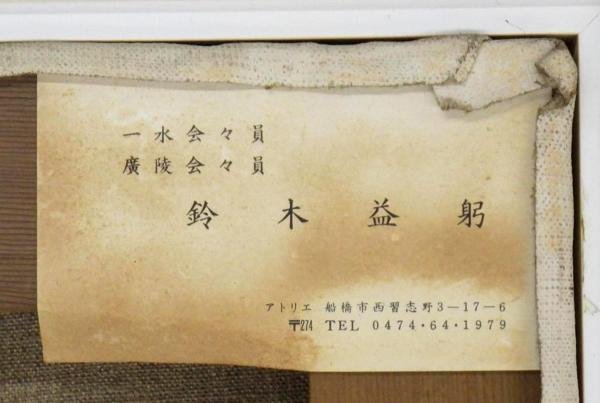 一水会々員
廣陵会々員
鈴木益躬
アトリエ 船橋市西習志野3―17―6
〒274 TEL 0474・64・1979